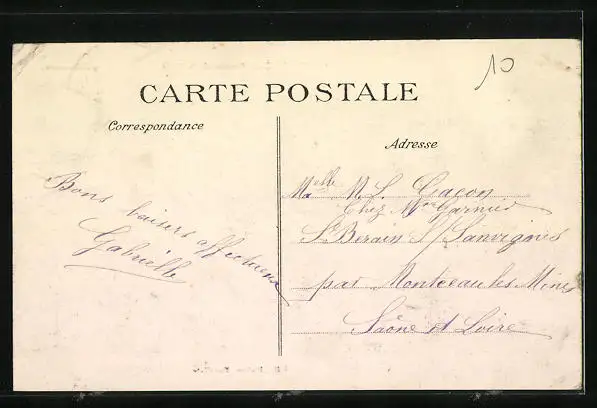 10
CARTE POSTALE
Correspondance
Adresse
Bons baisers affectueux
Gabrielle
Melle M. L. Gacon
Chez Mme Garnier
St Berain S/ Sanvignes
par Montceau les Mines
Saône et Loire